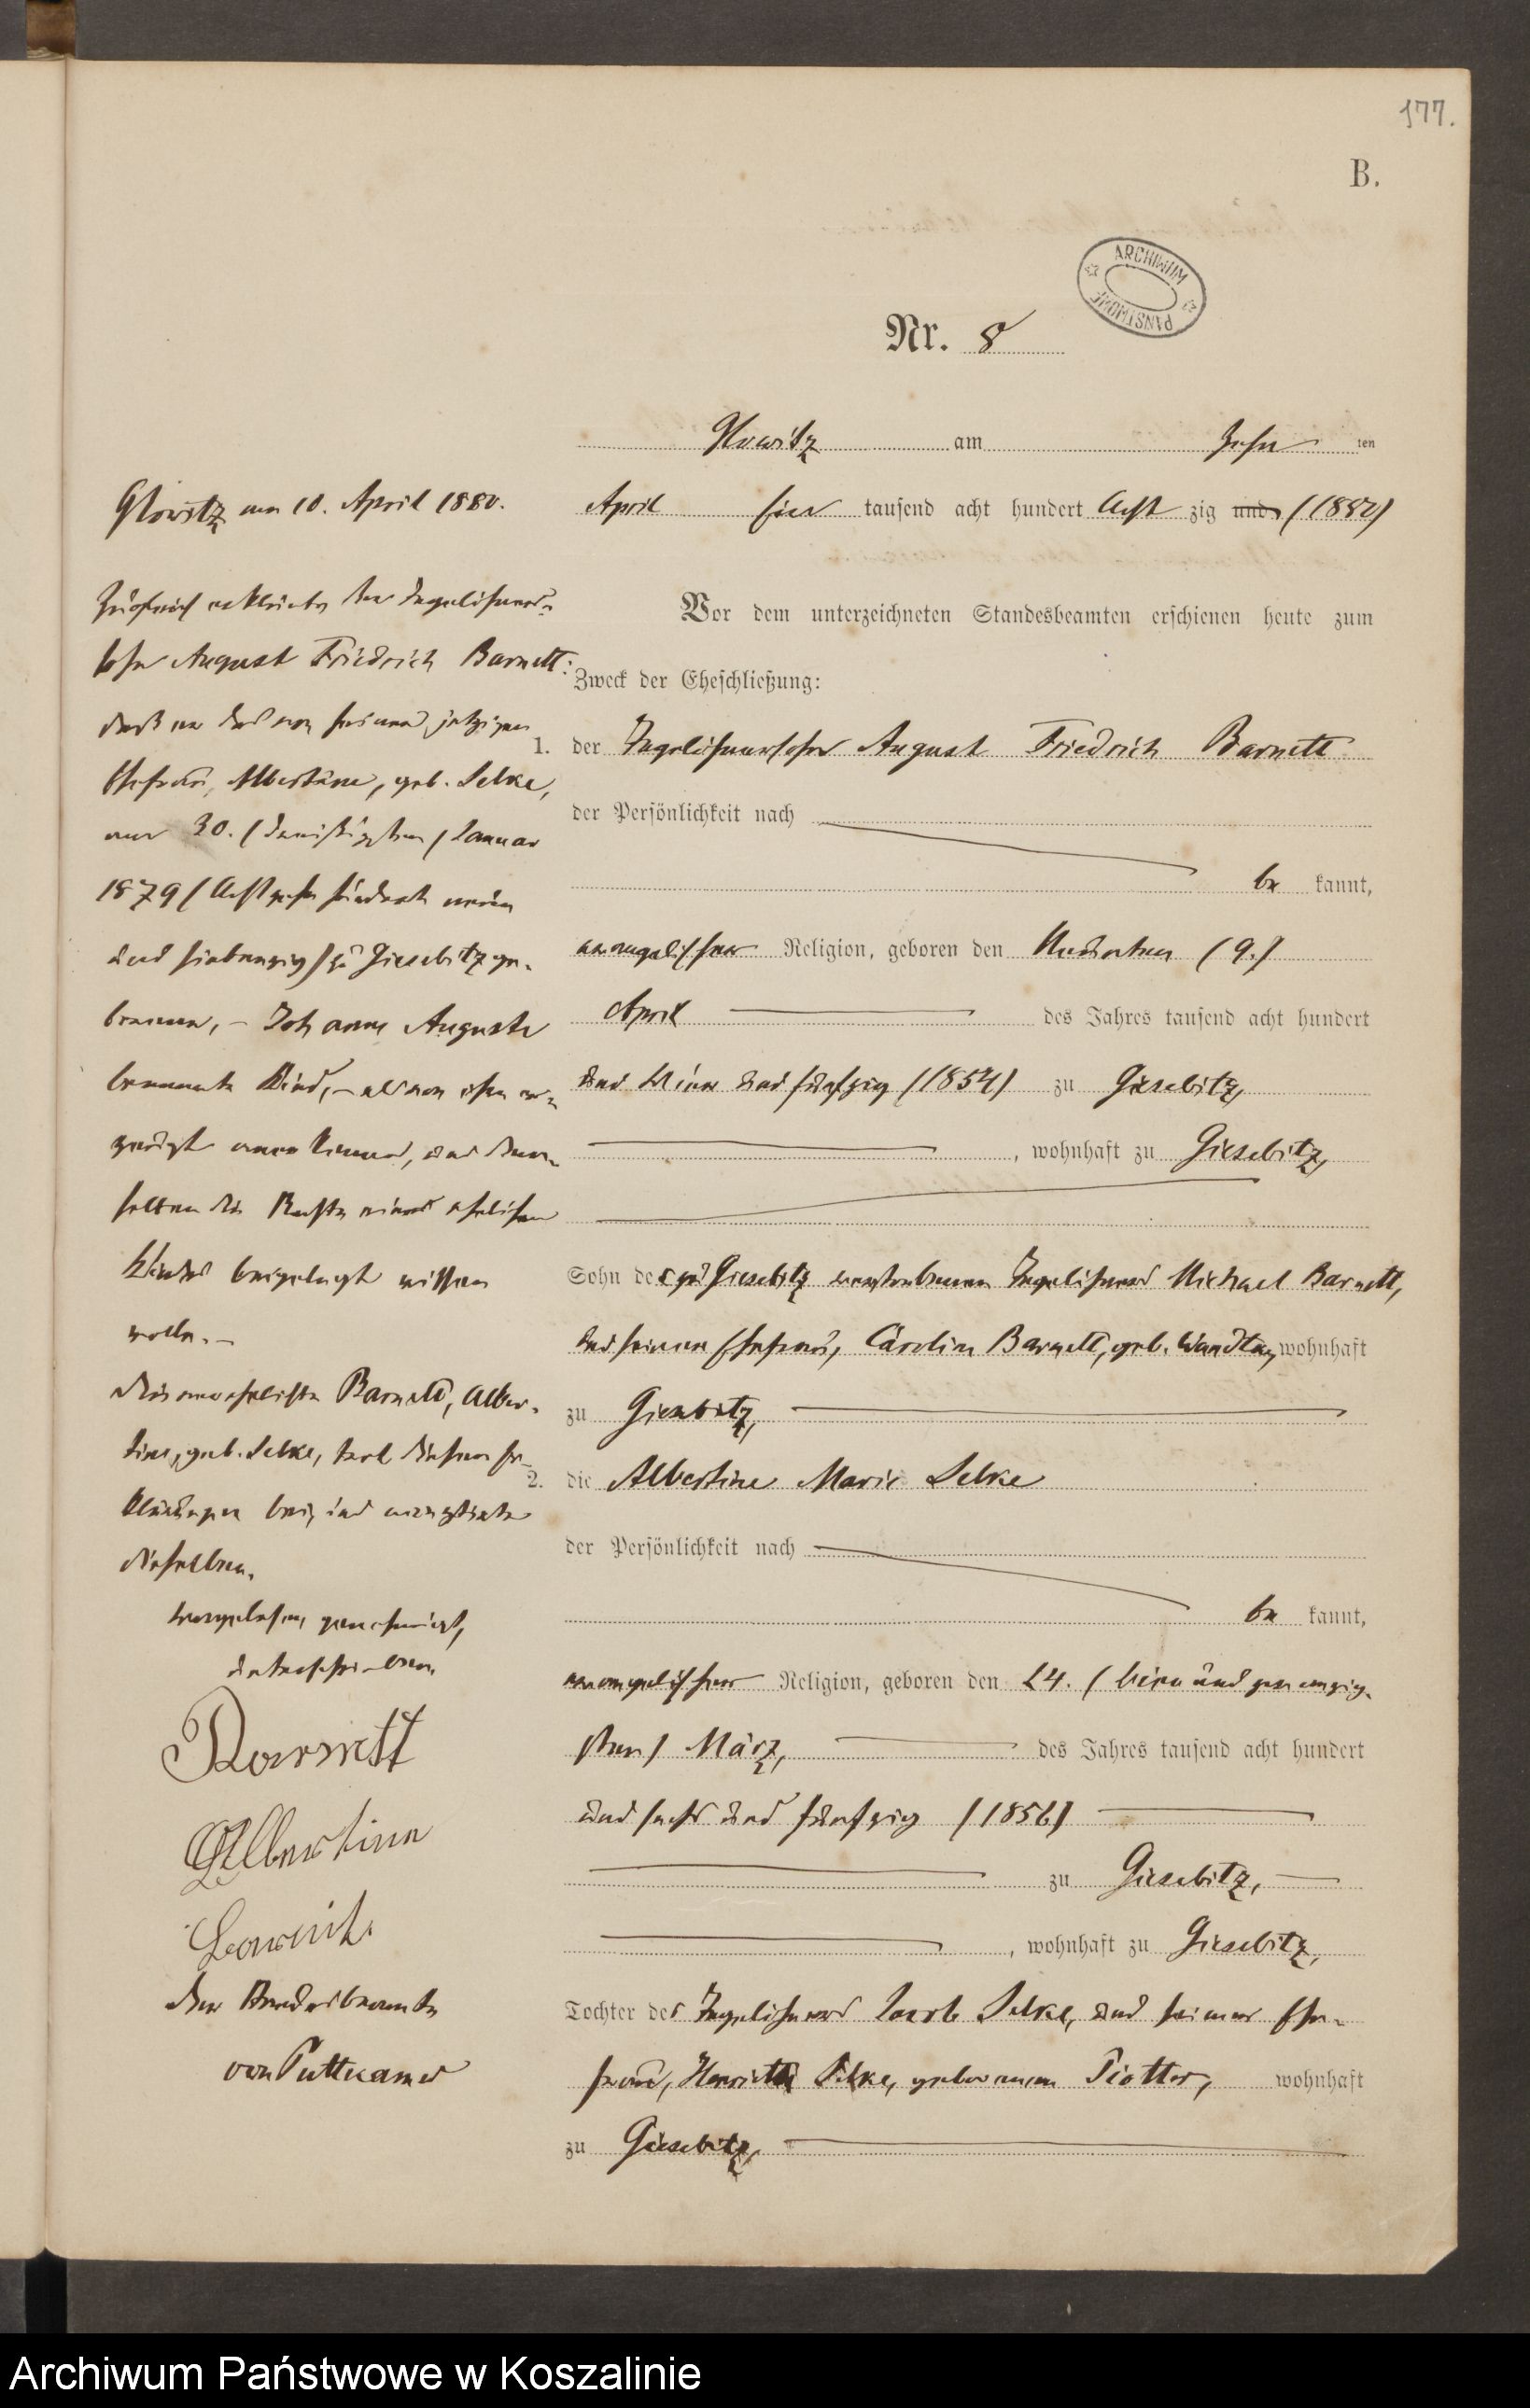 177.
B.
ARCHIWUM PAŃSTWOWE
Nr. 8
Glowitz am zehn ten
April hier tausend acht hundert Acht zig und (1880)
Vor dem unterzeichneten Standesbeamten erschienen heute zum
Zweck der Eheschließung:
1. der Tagelöhnersohn August Friedrich Barnett
der Persönlichkeit nach
be kannt,
evangelischer Religion, geboren den Neunten (9.)
April des Jahres tausend acht hundert
und vier und fünfzig (1854) zu Giesebitz,
, wohnhaft zu Giesebitz,
Sohn des zu Giesebitz verstorbenen Tagelöhners Michael Barnett,
und seiner Ehefrau, Caroline Barnett, geb. wohnhaft
zu Giesebitz,
2. die Albertine Marie Selke
der Persönlichkeit nach
be kannt,
evangelischer Religion, geboren den 24. (vier und zwanzig-
sten) März, des Jahres tausend acht hundert
und sechs und fünfzig (1856)
zu Giesebitz,
, wohnhaft zu Giesebitz,
Tochter des Tagelöhners Jacob Selke, und seiner Ehe-
frau, Henriette Selke, geborenen wohnhaft
zu Giesebitz,
Glowitz am 10. April 1880.
Zugleich erklärte der Tagelöhner-
sohn August Friedrich Barnett:
daß er das von seiner jetzigen
Ehefrau, Albertine, geb. Selke,
am 30. (dreißigsten) Januar
1879 (Achtzehn hundert neun
und siebenzig) zu Giesebitz ge-
borene, – Johanne Auguste
benannte Kind, – als von ihm er-
zeugt anerkenne, und dem-
selben die Rechte eines ehelichen
Kindes beigelegt wissen
wolle. –
Die verehelichte Barnett, Alber-
tine, geb. Selke, trat diesen Er-
klärungen bei, und
dieselben.
Vorgelesen, genehmigt,
unterschrieben
Barnett
Albertine
Barnett
Der Standesbeamte
von Puttkamer
Archiwum Państwowe w Koszalinie